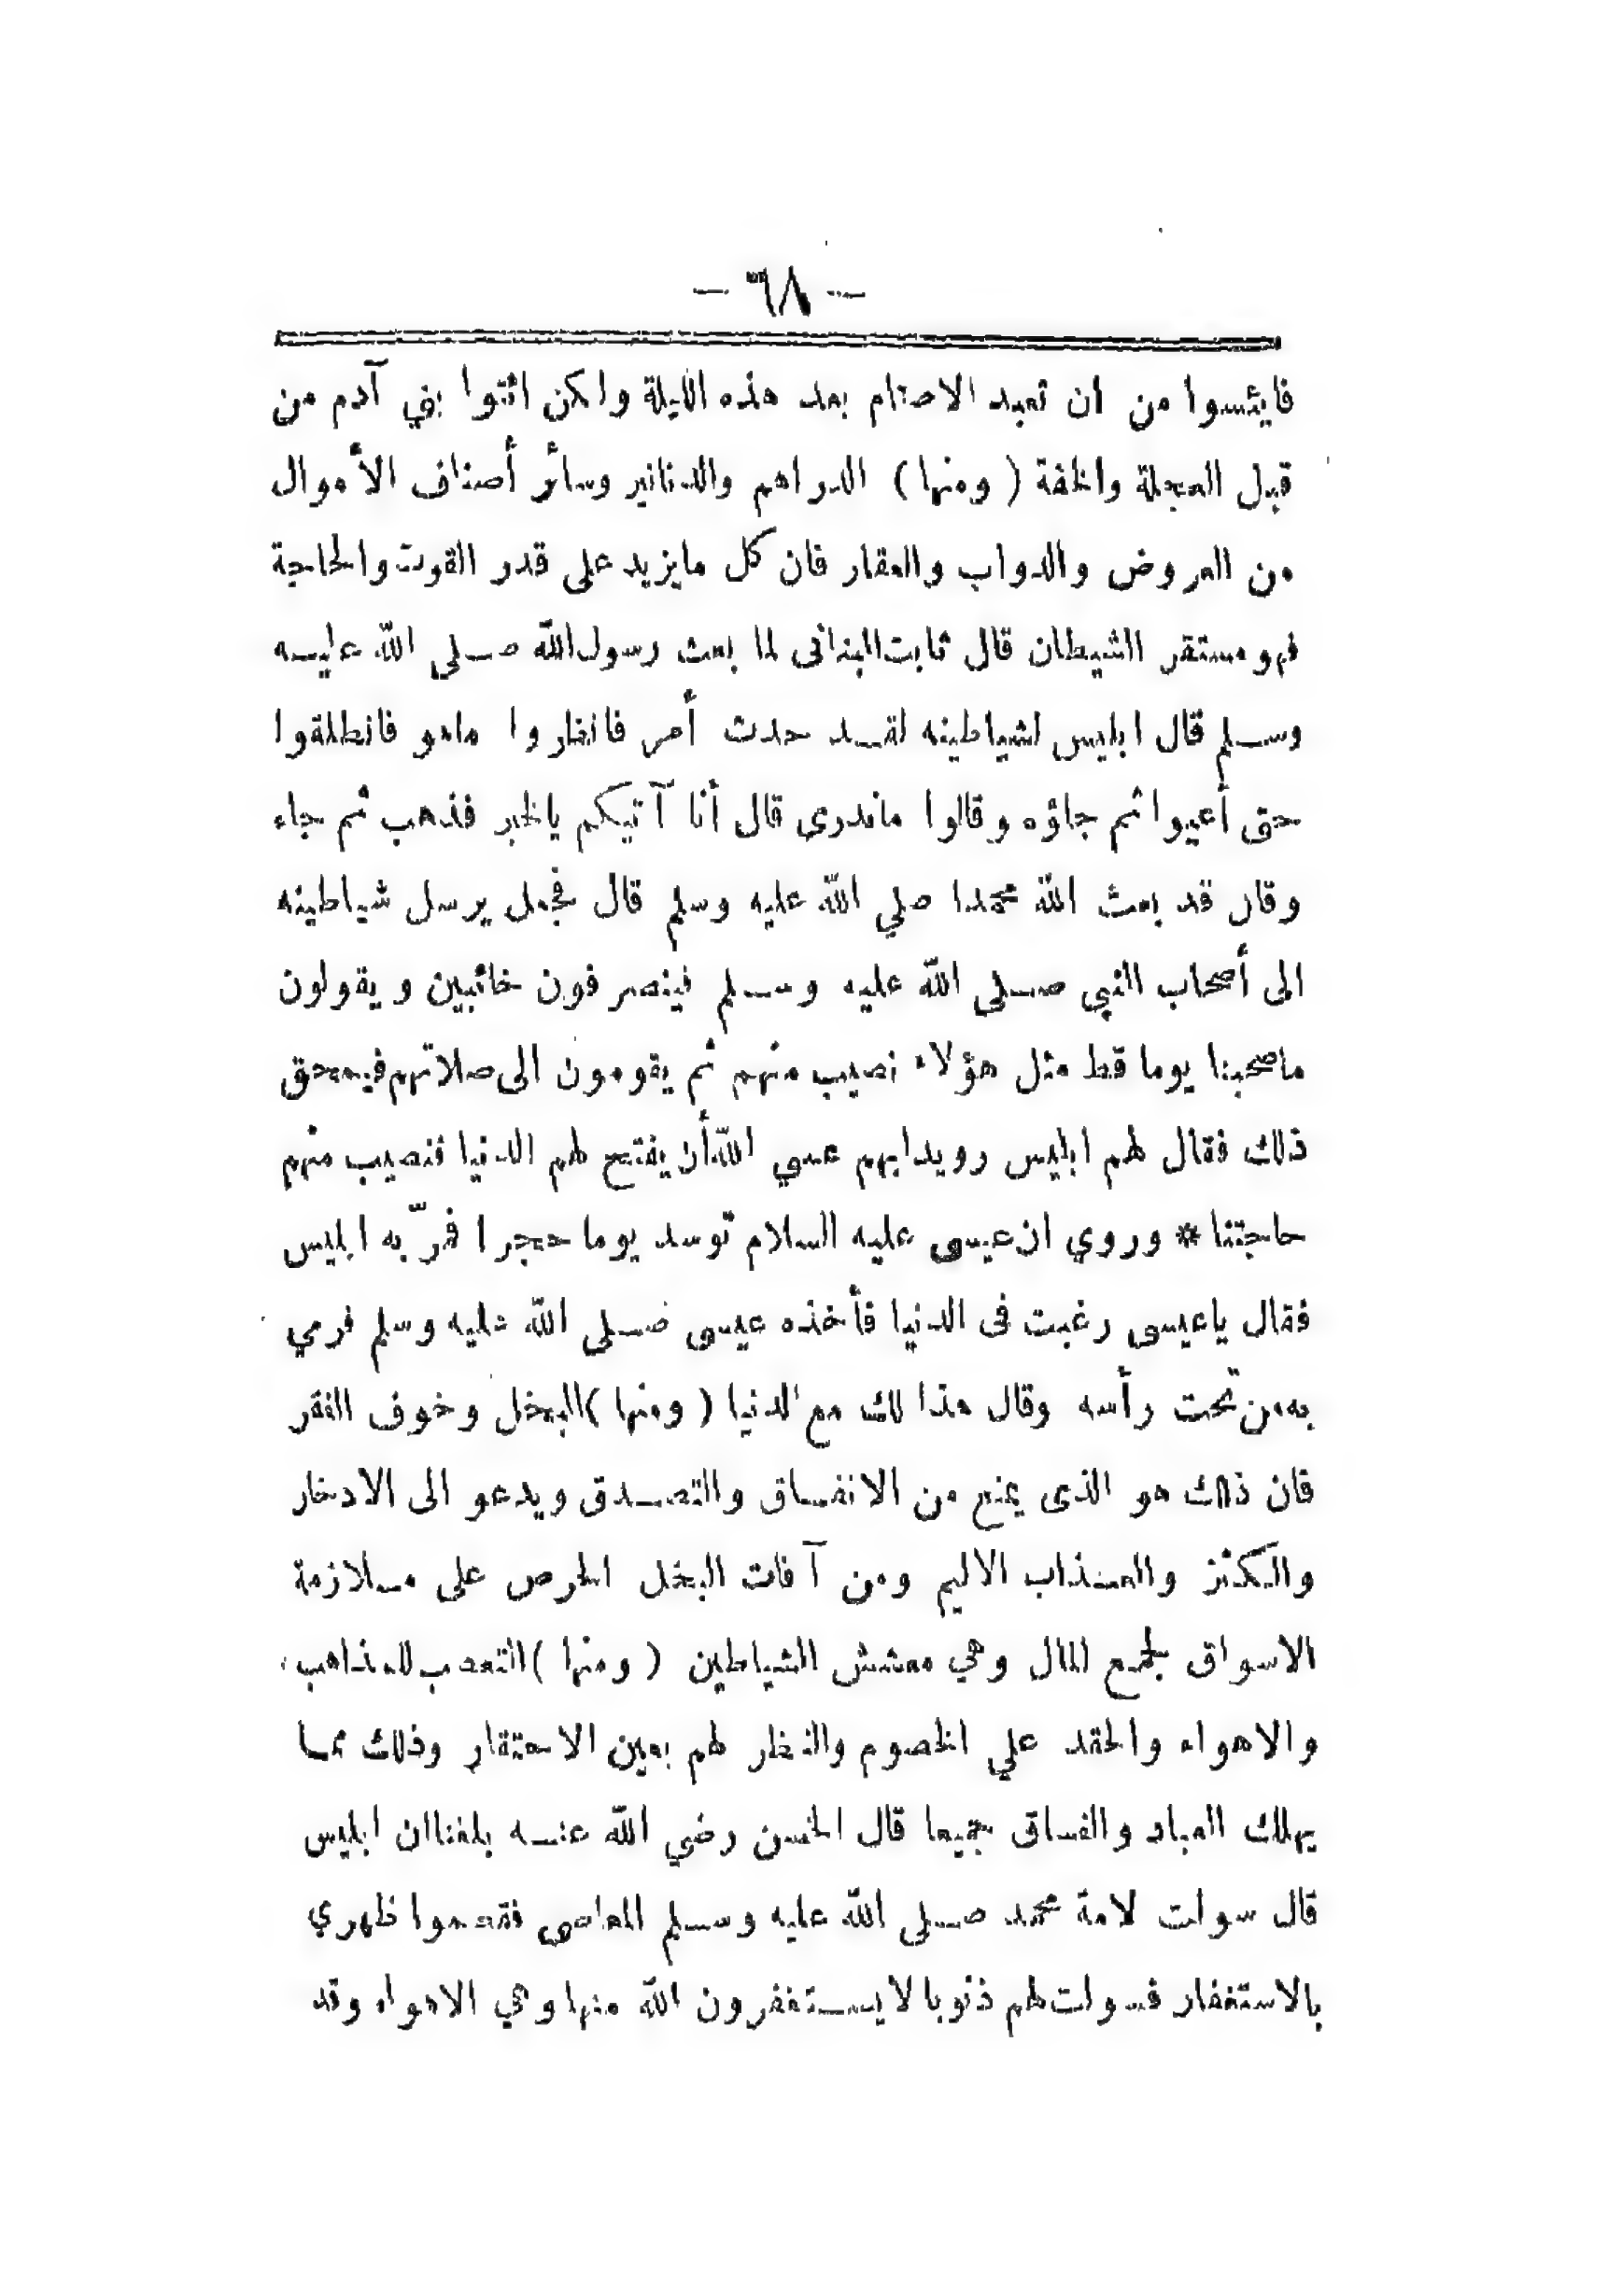 - ٦٨ -
فايئسوا من ان تعبد الاصنام بعد هذه الليلة ولكن ائتوا بني آدم من
قبل العجلة والخفة (ومنها) الدراهم والدنانير وسائر أصناف الأموال
من العروض والدواب والعقار فان كل مايزيد على قدر القوت والحاجة
فهو مستقر الشيطان قال ثابت البنانى لما بعث رسول الله صلى الله عليه
وسلم قال ابليس لشياطينه لقد حدث أمر فانظروا ماهو فانطلقوا
حتى أعيوا ثم جاؤه وقالوا ماندرى قال أنا آتيكم بالخبر فذهب ثم جاء
وقال قد بعث الله محمدا صلي الله عليه وسلم قال فجعل يرسل شياطينه
الى أصحاب النبي صلى الله عليه وسلم فينصرفون خائبين ويقولون
ماصحبنا يوما قط مثل هؤلاء نصيب منهم ثم يقومون الى صلاتهم فيمحق
ذلك فقال لهم ابليس رويدا بهم عسي الله أن يفتح لهم الدنيا فنصيب منهم
حاجتنا * وروي ان عيسى عليه السلام توسد يوما حجرا فمرّ به ابليس
فقال ياعيسى رغبت فى الدنيا فأخذه عيسى صلى الله عليه وسلم فرمي
به من تحت رأسه وقال هذا لك مع الدنيا (ومنها) البخل وخوف الفقر
فان ذلك هو الذى يمنع من الانفاق والتصدق ويدعو الى الادخار
والكنز والعذاب الاليم ومن آفات البخل الحرص على ملازمة
الاسواق لجمع المال وهي معشش الشياطين (ومنها) التعصب للمذاهب
والاهواء والحقد علي الخصوم والنظر لهم بعين الاحتقار وذلك مما
يهلك العباد والفساق جميعا قال الحسن رضي الله عنه بلغنا ان ابليس
قال سولت لامة محمد صلى الله عليه وسلم المعاصى فقصموا ظهري
بالاستغفار فسولت لهم ذنوبا لا يستغفرون الله منها وهي الاهواء وقد